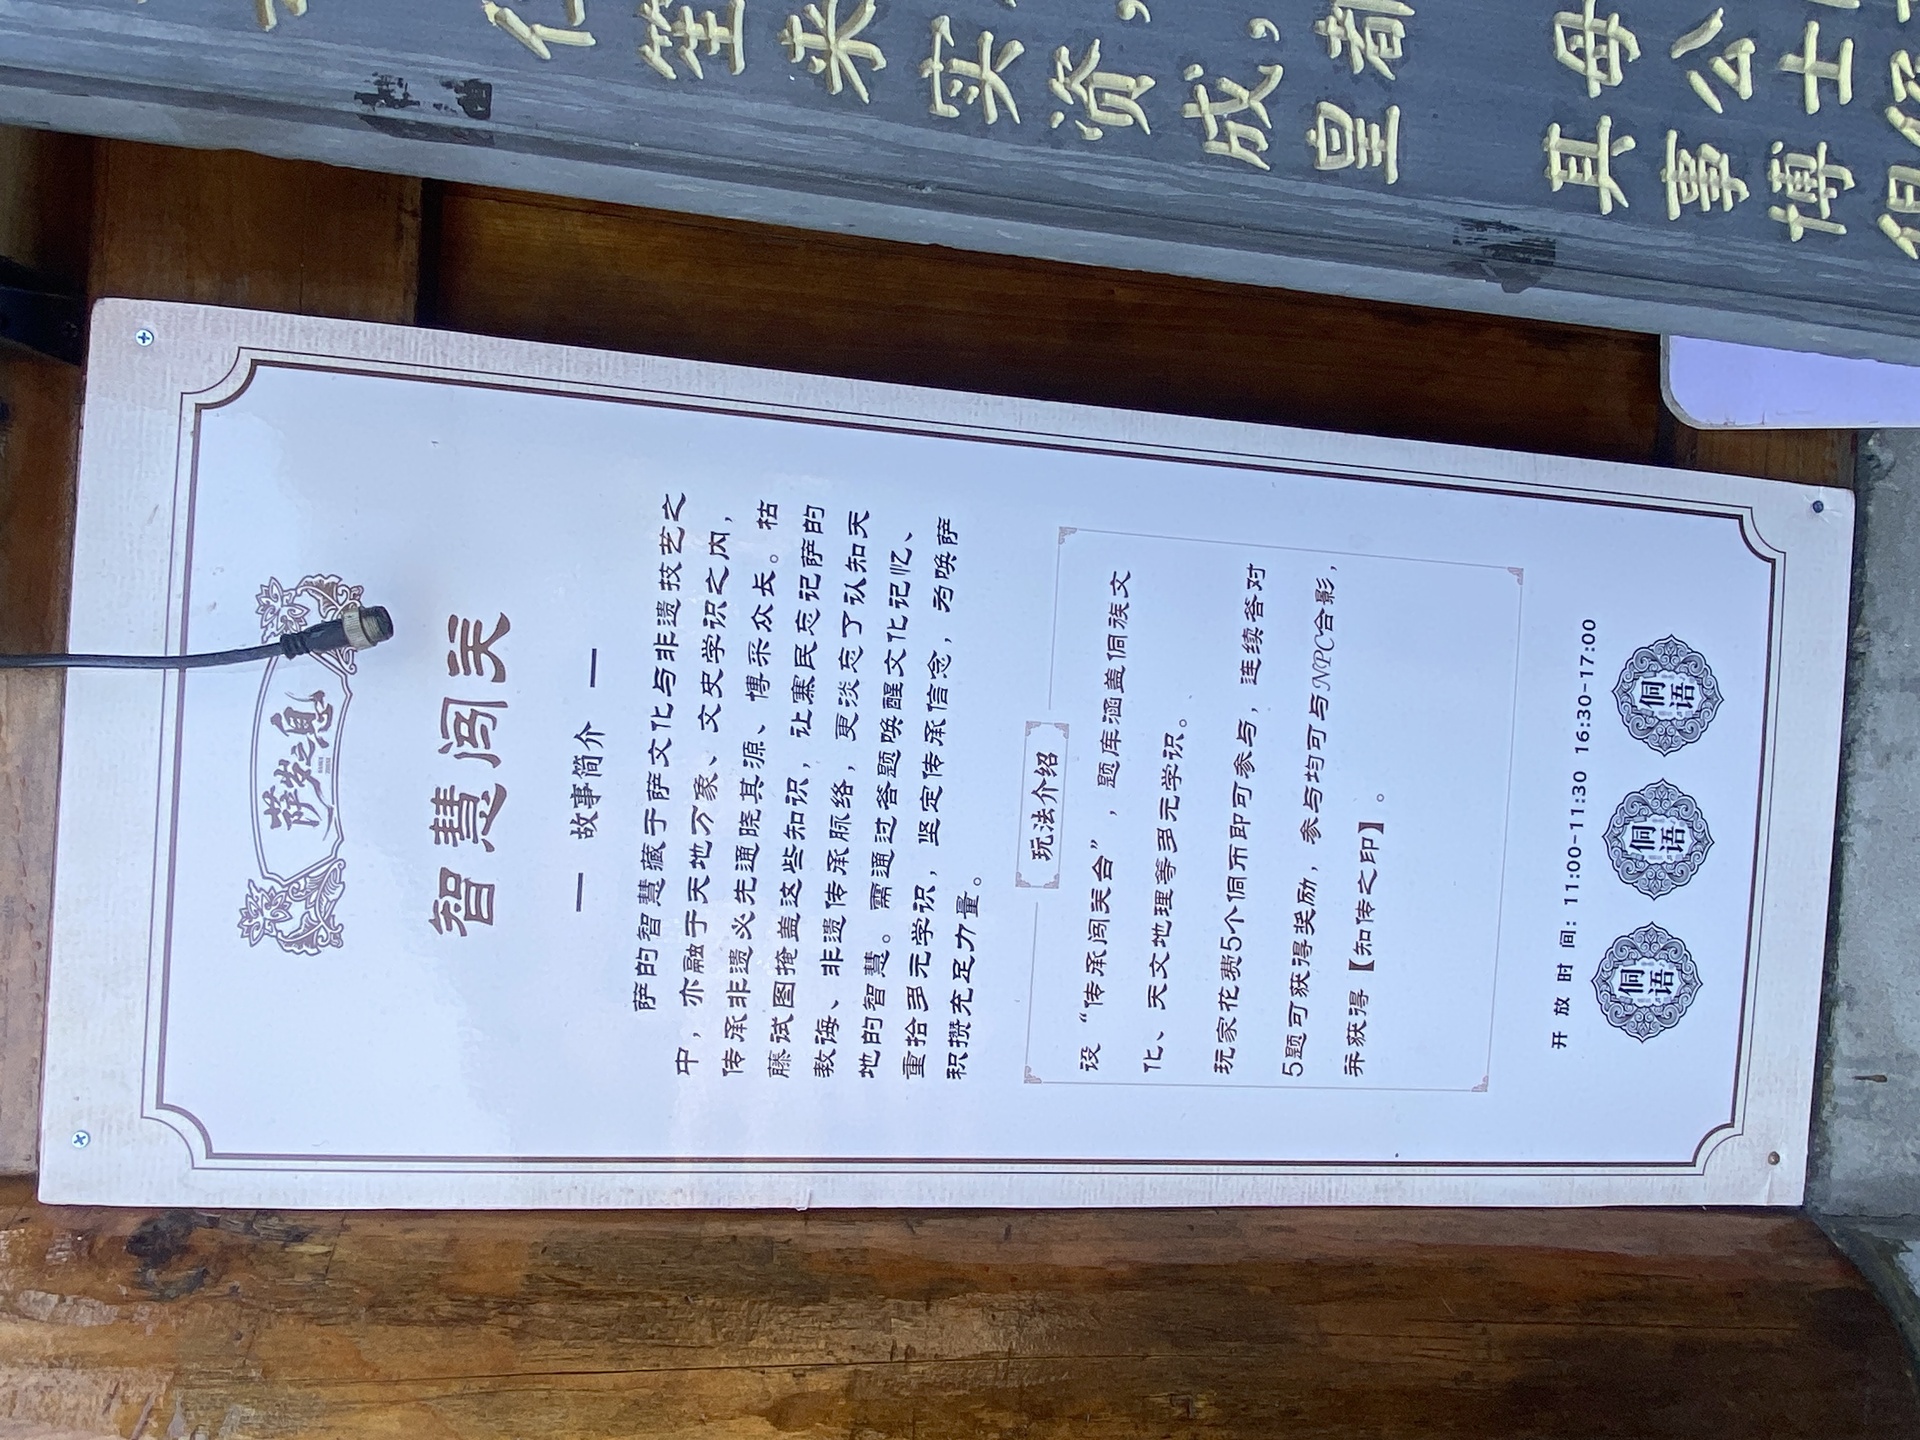 萨岁之息
智慧闯关
故事简介
萨的智慧藏于萨文化与非遗技艺之
中，亦融于天地万象、文史学识之内，
传承非遗必先通晓其源、博采众长。枯
藤试图掩盖这些知识，让寨民忘记萨的
教诲、非遗传承脉络，更淡忘了认知天
地的智慧。需通过答题唤醒文化记忆、
重拾多元学识，坚定传承信念，为唤萨
积攒充足力量。
玩法介绍
设“传承闯关台”，题库涵盖侗族文
化、天文地理等多元学识。
玩家花费5个侗币即可参与，连续答对
5题可获得奖励，参与均可与NPC合影，
并获得【知传之印】。
开放时间：11:00-11:30 16:30-17:00
侗语
侗语
侗语
笙
来
实
资
成，
皇都
其母
事公
博士